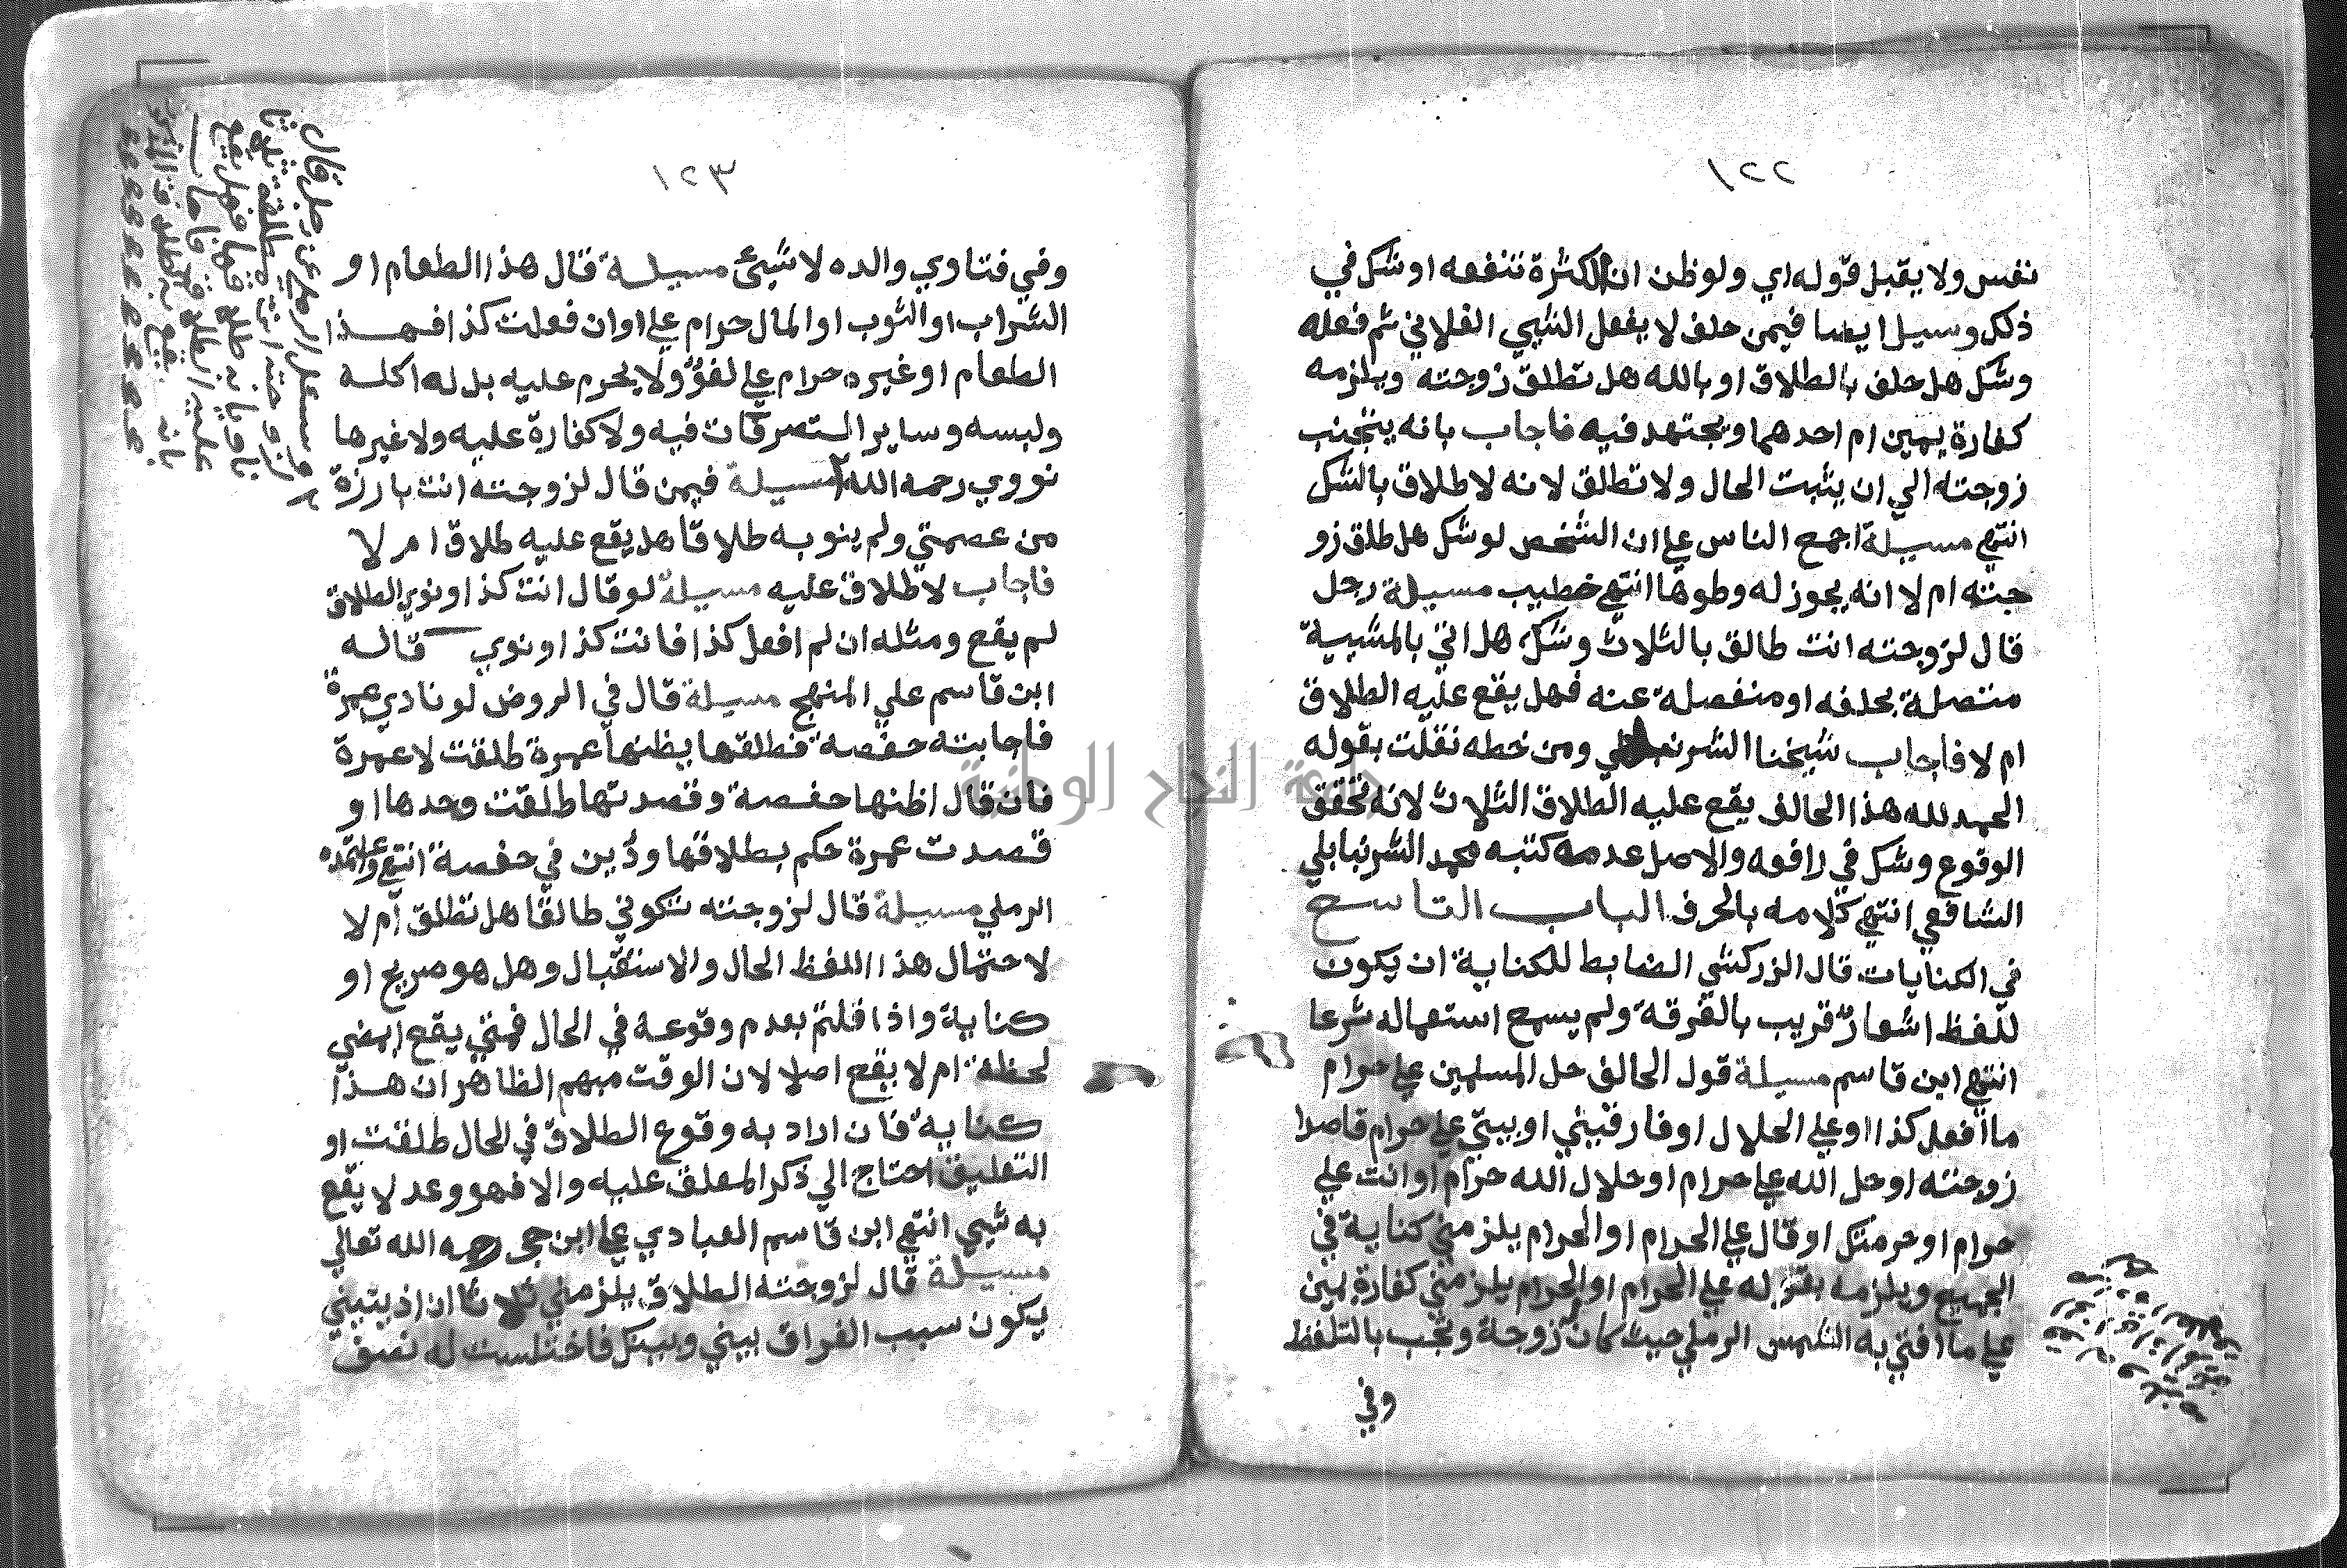 ١٢٢
نفس ولا يقبل قوله اي ولوظن ان الكثرة تنفعه او شك في
ذلك وسيل ايضا فيمن حلف لا يفعل الشيي الفلاني ثم فعله
وشك هل حلف بالطلاق او بالله هل تطلق زوجته ويلزمه
كفارة يمين ام احدهما ويجتهد فيه فاجاب بانه يتجنب
زوجته الي ان يثبت الحال ولا تطلق لانه لا طلاق بالشك
انتهي مسيلة اجمع الناس علي ان الشخص لو شك هل طلق زو
جته ام لا انه يجوز له وطوها انتهي خطيب مسيلة رجل
قال لزوجته انت طالق بالثلاث وشك هل اتي بالمشيية
متصلة بحلفه او منفصلة عنه فهل يقع عليه الطلاق
ام لا فاجاب شيخنا ومن خطه نقلت بقوله
الحمد لله هذا الحالف يقع عليه الطلاق الثلاث لانه تحقق
الوقوع وشك في رافعه والاصل عدمه كتبه محمد الشرنبابلي
الشافعي انتهي كلامه بالحرف الباب التاسع
في الكنايات قال الزركشي الضابط للكناية ان يكون
للفظ اشعار قريب بالفرقة ولم يسمع استعماله شرعا
انتهي ابن قاسم مسيلة قول الحالف حل المسلمين علي حرام
ما افعل كذا او علي الحلال او فارقيني او بيتي علي حرام قاصدا
زوجته او حل الله علي حرام او حلال الله حرام او انت علي
حرام او حرمتك او قال علي الحرام او الحرام يلزمني كناية في
الجميع ويلزمه بقوله علي الحرام او الحرام يلزمني كفارة يمين
علي ما افتي به الشمس الرملي حيث كان زوجة وتجب بالتلفظ
وفي
١٢٣
وفي فتاوي والده لا شيئ مسيلة قال هذا الطعام او
الشراب او الثوب او المال حرام علي او ان فعلت كذا فهذا
الطعام او غيره حرام علي لغو ولا يحرم عليه بل له اكله
ولبسه وساير التصرفات فيه ولا كفارة عليه ولا غيرها
نووي رحمه الله مسيلة فيمن قال لزوجته انت بارزة
من عصمتي ولم ينو به طلاقا هل يقع عليه طلاق ام لا
فاجاب لا طلاق عليه مسيلة لو قال انت كذا ونوي الطلاق
لم يقع ومثله ان لم افعل كذا فانت كذا ونوي قاله
ابن قاسم علي المنهج مسيلة قال في الروض لو نادي عمرة
فاجابته حفصة فطلقها يظنها عمرة طلقت لا عمرة
فان قال اظنها حفصة وقصدتها طلقت وحدها او
قصدت عمرة حكم بطلاقها ودين في حفصة انتهي واعتمده
الرملي مسيلة قال لزوجته تكوني طالقا هل تطلق ام لا
لاحتمال هذا اللفظ الحال والاستقبال وهل هو صريح او
كناية واذا قلتم بعدم وقوعه في الحال فمتي يقع ابمضي
لحظة ام لا يقع اصلا لان الوقت مبهم الظاهر ان هذا
كناية فان اراد به وقوع الطلاق في الحال طلقت او
التعليق احتاج الي ذكر المعلق عليه والا فهو وعد لا يقع
به شيي انتهي ابن قاسم العبادي علي ابن حجر رحمه الله تعالي
مسيلة قال لزوجته الطلاق يلزمني ثلاثا ان اذيتيني
يكون سبب الفراق بيني وبينك فاختلست له نصف
وسئل الرملي عن رجل قال